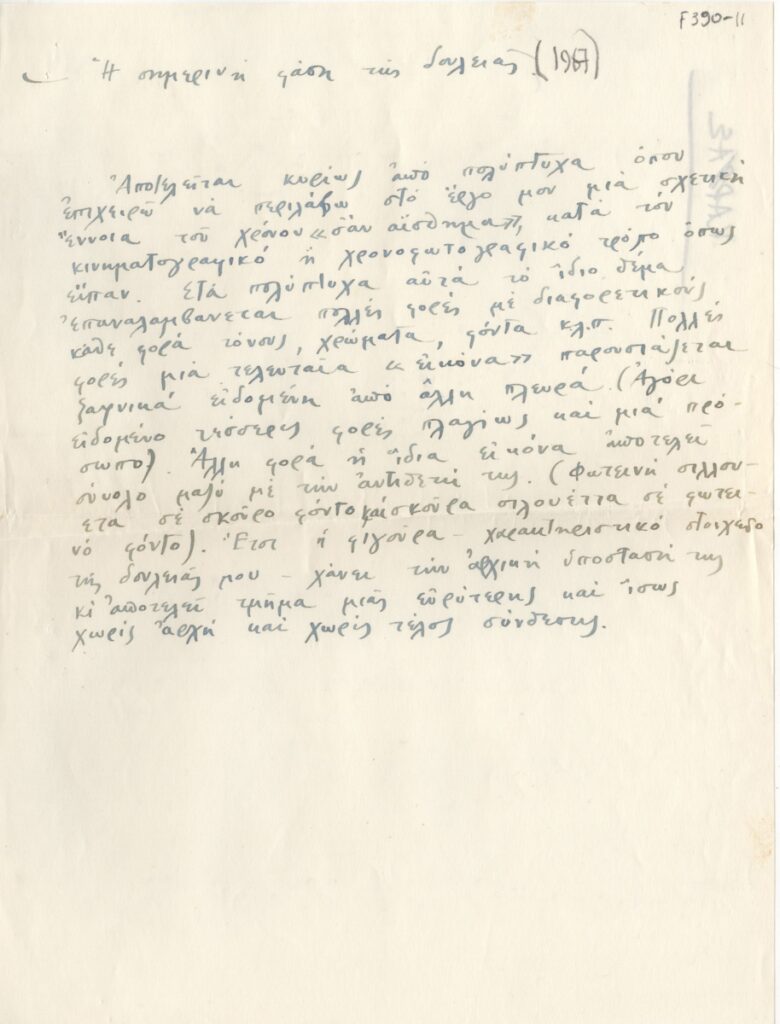 F390-11
Ἡ σημερινή φάση τῆς δουλειᾶς (1967)
Ἀποτελεῖται κυρίως ἀπό πολύπτυχα ὅπου
ἐπιχειρῶ νά περιλάβω στό ἔργο μου μιά σχετική
ἔννοια τοῦ χρόνου «σάν αἴσθημα», κατά τόν
κινηματογραφικό ἤ χρονοφωτογραφικό τρόπο ὅπως
εἶπαν. Στά πολύπτυχα αὐτά τό ἴδιο θέμα
ἐπαναλαμβάνεται πολλές φορές μέ διαφορετικούς
κάθε φορά τόνους, χρώματα, φόντα κ.λ.π. Πολλές
φορές μιά τελευταία «εἰκόνα» παρουσιάζεται
ξαφνικά εἰδομένη ἀπό ἄλλη πλευρά. (Ἀγόρι
εἰδομένο τέσσερις φορές πλαγίως καί μιά πρό-
σωπο). Ἄλλη φορά ἡ ἴδια εἰκόνα ἀποτελεῖ
σύνολο μαζύ μέ τήν ἀντίθετή της. (Φωτεινή σιλλου-
ετα σέ σκοῦρο φόντο καί σκοῦρα σιλουέττα σέ φωτει-
νό φόντο). Ἔτσι ἡ φιγοῦρα – χαρακτηριστικό στοιχεῖο
τῆς δουλειᾶς μου – χάνει τήν ἀρχική ὑπόστασή της
κι ἀποτελεῖ τμῆμα μιᾶς εὐρύτερης καί ἴσως
χωρίς ἀρχή καί χωρίς τέλος σύνθεσης.